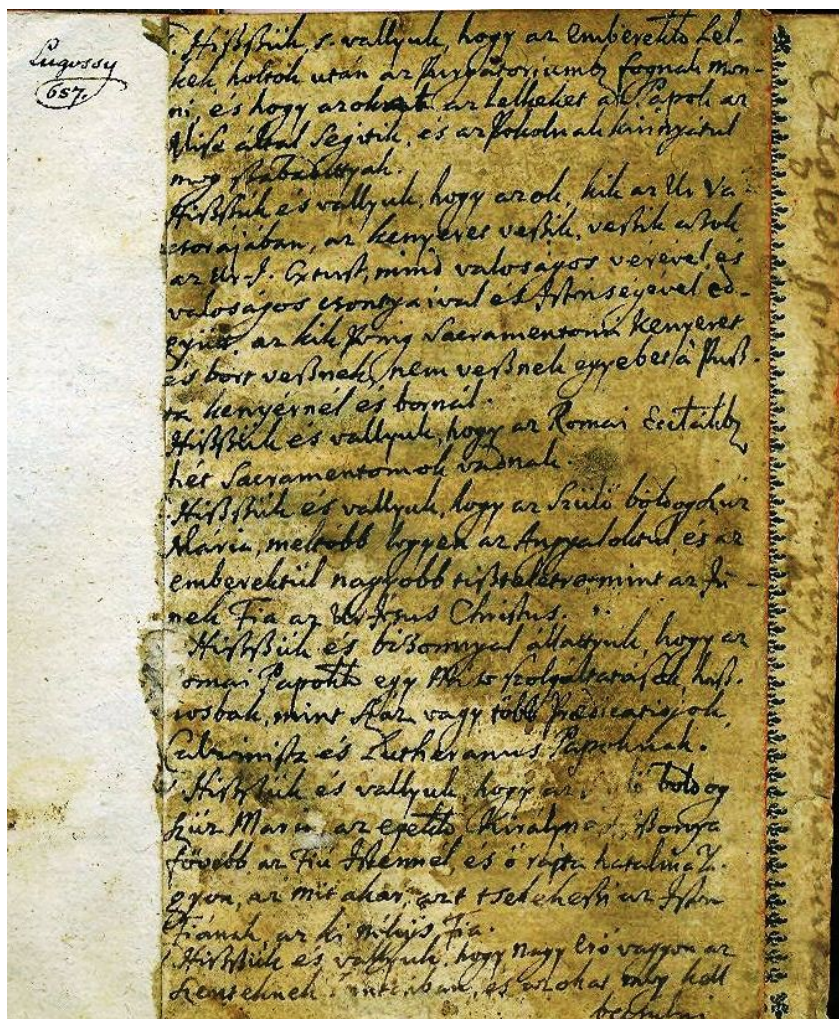 Lugossy
657.
Hißßük, s. vallyuk, hogy az Embereknek Lel-
kek holtok után az Purgatoriumba fognak men-
ni, és hogy azokat az lelkeket az Papok az
Mise által segitik, és az Pokolnak kinnyátul
meg szabadittyák.
Hißßük és vallyuk, hogy azok, kik az Ur Va-
csorájában, az kenyeret veßik, veßik
az Ur J. Cristust, mind valoságos vérével, és
valoságos csontyaival és Istenségével ed-
gyütt, az kik pedig Sacramentomi Kenyeret
és bort veßnek, nem veßnek egyebet à puß-
ta kenyérnél és bornál.
Hißßük és vallyuk, hogy az Romai
hét Sacramentomok vadnak.
Hißßük és vallyuk, hogy az Szülö boldog Szüz
Mária, meltobb légyen az Angyaloktul és az
emberektül nagyobb tißteletre, mint az Iste-
nek Fia az Ur Jésus Christus.
Hißßük és bizonnyal állattyuk, hogy az
omai Papok egy Mise szolgáltatások, haß-
nosbak, mint száz vagy több Prædicatiojok
Calvinista és Lutheranus Papoknak.
Hißßük és vallyuk, hogy az boldog
szüz Maria, az egeknek Királyné Aßßonya
fövebb az Fiu Istennel, és ö rajta hatalma va-
gyon, az mit akar, azt tselekeßi az Isten
Fiának, az ki nékiis Fia.
Hißßük és vallyuk, hogy Nagy Erö vagyon az
Szenteknek, és azokat meg kell
becsulni